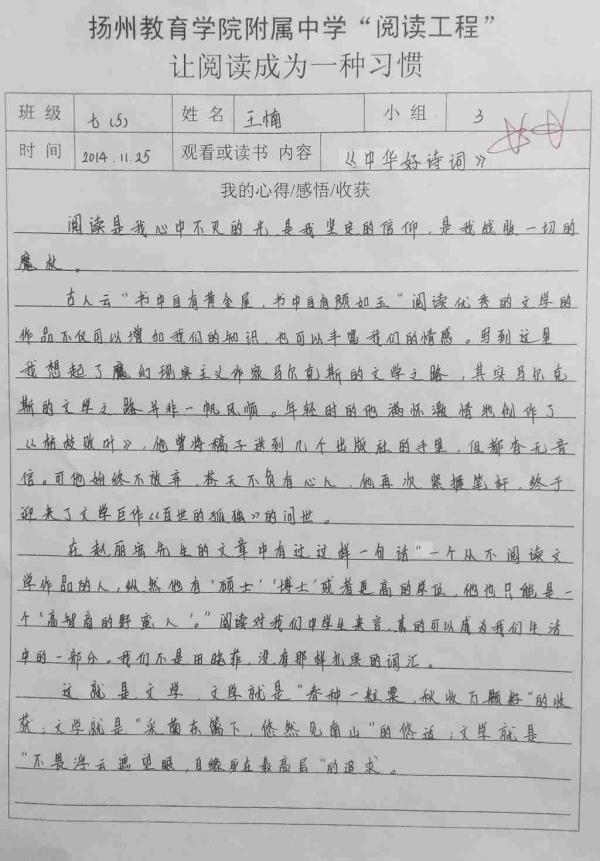 扬州教育学院附属中学“阅读工程”
让阅读成为一种习惯
班 级 七(5) 姓 名 王楠 小 组 3
时 间 2014.11.25 观看或读书 内容 《中华好诗词》
我的心得/感悟/收获
阅读是我心中不灭的光,是我坚定的信仰,是我战胜一切的
魔杖。
古人云“书中自有黄金屋,书中自有颜如玉”阅读优秀的文学的
作品不仅可以增加我们的知识,也可以丰富我们的情感。写到这里
我想起了魔幻现实主义作家马尔克斯的文学之路,其实马尔克
斯的文学之路并非一帆风顺。年轻时的他满怀激情地创作了
《枯枝败叶》,他曾将稿子送到几个出版社的手里,但都杳无音
信。可他始终不放弃,苍天不负有心人,他再次紧握笔杆,终于
迎来了文学巨作《百世的孤独》的问世。
在赵丽宏先生的文章中有过这样一句话“一个从不阅读文
学作品的人,纵然他有‘硕士’‘博士’或者更高的学位,他也只能是一
个‘高智商的野蛮人’。”阅读对我们中学生来言,真的可以成为我们生活
中的一部分。我们不是田晓菲,没有那样扎实的词汇。
这就是文学 文学就是“春种一粒粟,秋收万颗籽”的收
获;文学就是“采菊东篱下,悠然见南山”的悠远;文学就是
“不畏浮云遮望眼,自缘身在最高层”的追求。